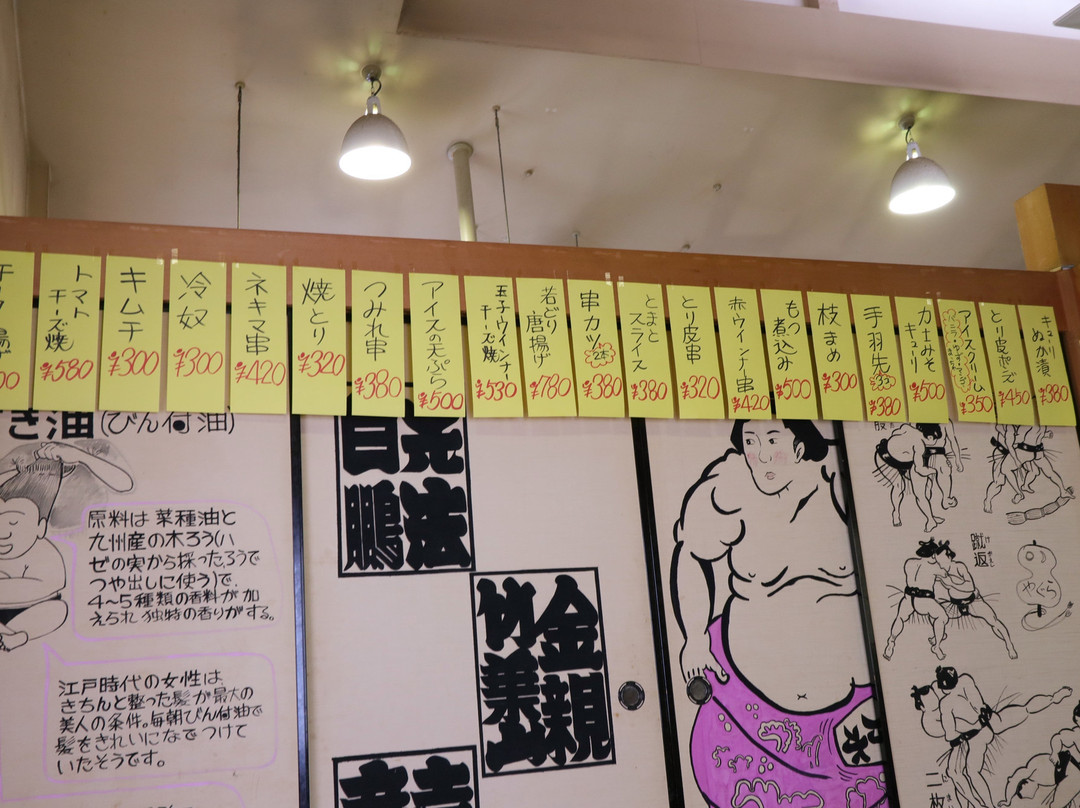 トマト
チーズ焼
¥580
キムチ
¥300
冷奴
¥300
ネギマ串
¥420
焼とり
¥320
つみれ串
¥380
アイスの天ぷら
¥500
玉子ウインナー
チーズ焼
¥530
若どり
唐揚げ
¥780
串カツ
2本
¥380
とまと
スライス
¥380
とり皮串
¥320
赤ウインナー串
¥420
もつ
煮込み
¥500
枝まめ
¥300
手羽先
¥380
力士みそ
キュリ
¥500
アイスクリーム
¥350
とり皮ポンズ
¥450
ぬか漬
¥380
き油(びん付油)
原料は菜種油と
九州産の木ろう(ハ
ゼの実から採ったろうで
つや出しに使う)で、
4~5種類の香料が加
えられ独特の香りがする。
江戸時代の女性は、
きちんと整った髪が最大の
美人の条件。毎朝びん付油で
髪をきれいになでつけて
いたそうです。
鵬
法
金親
蹴返
けかえし
やぐら
二枚